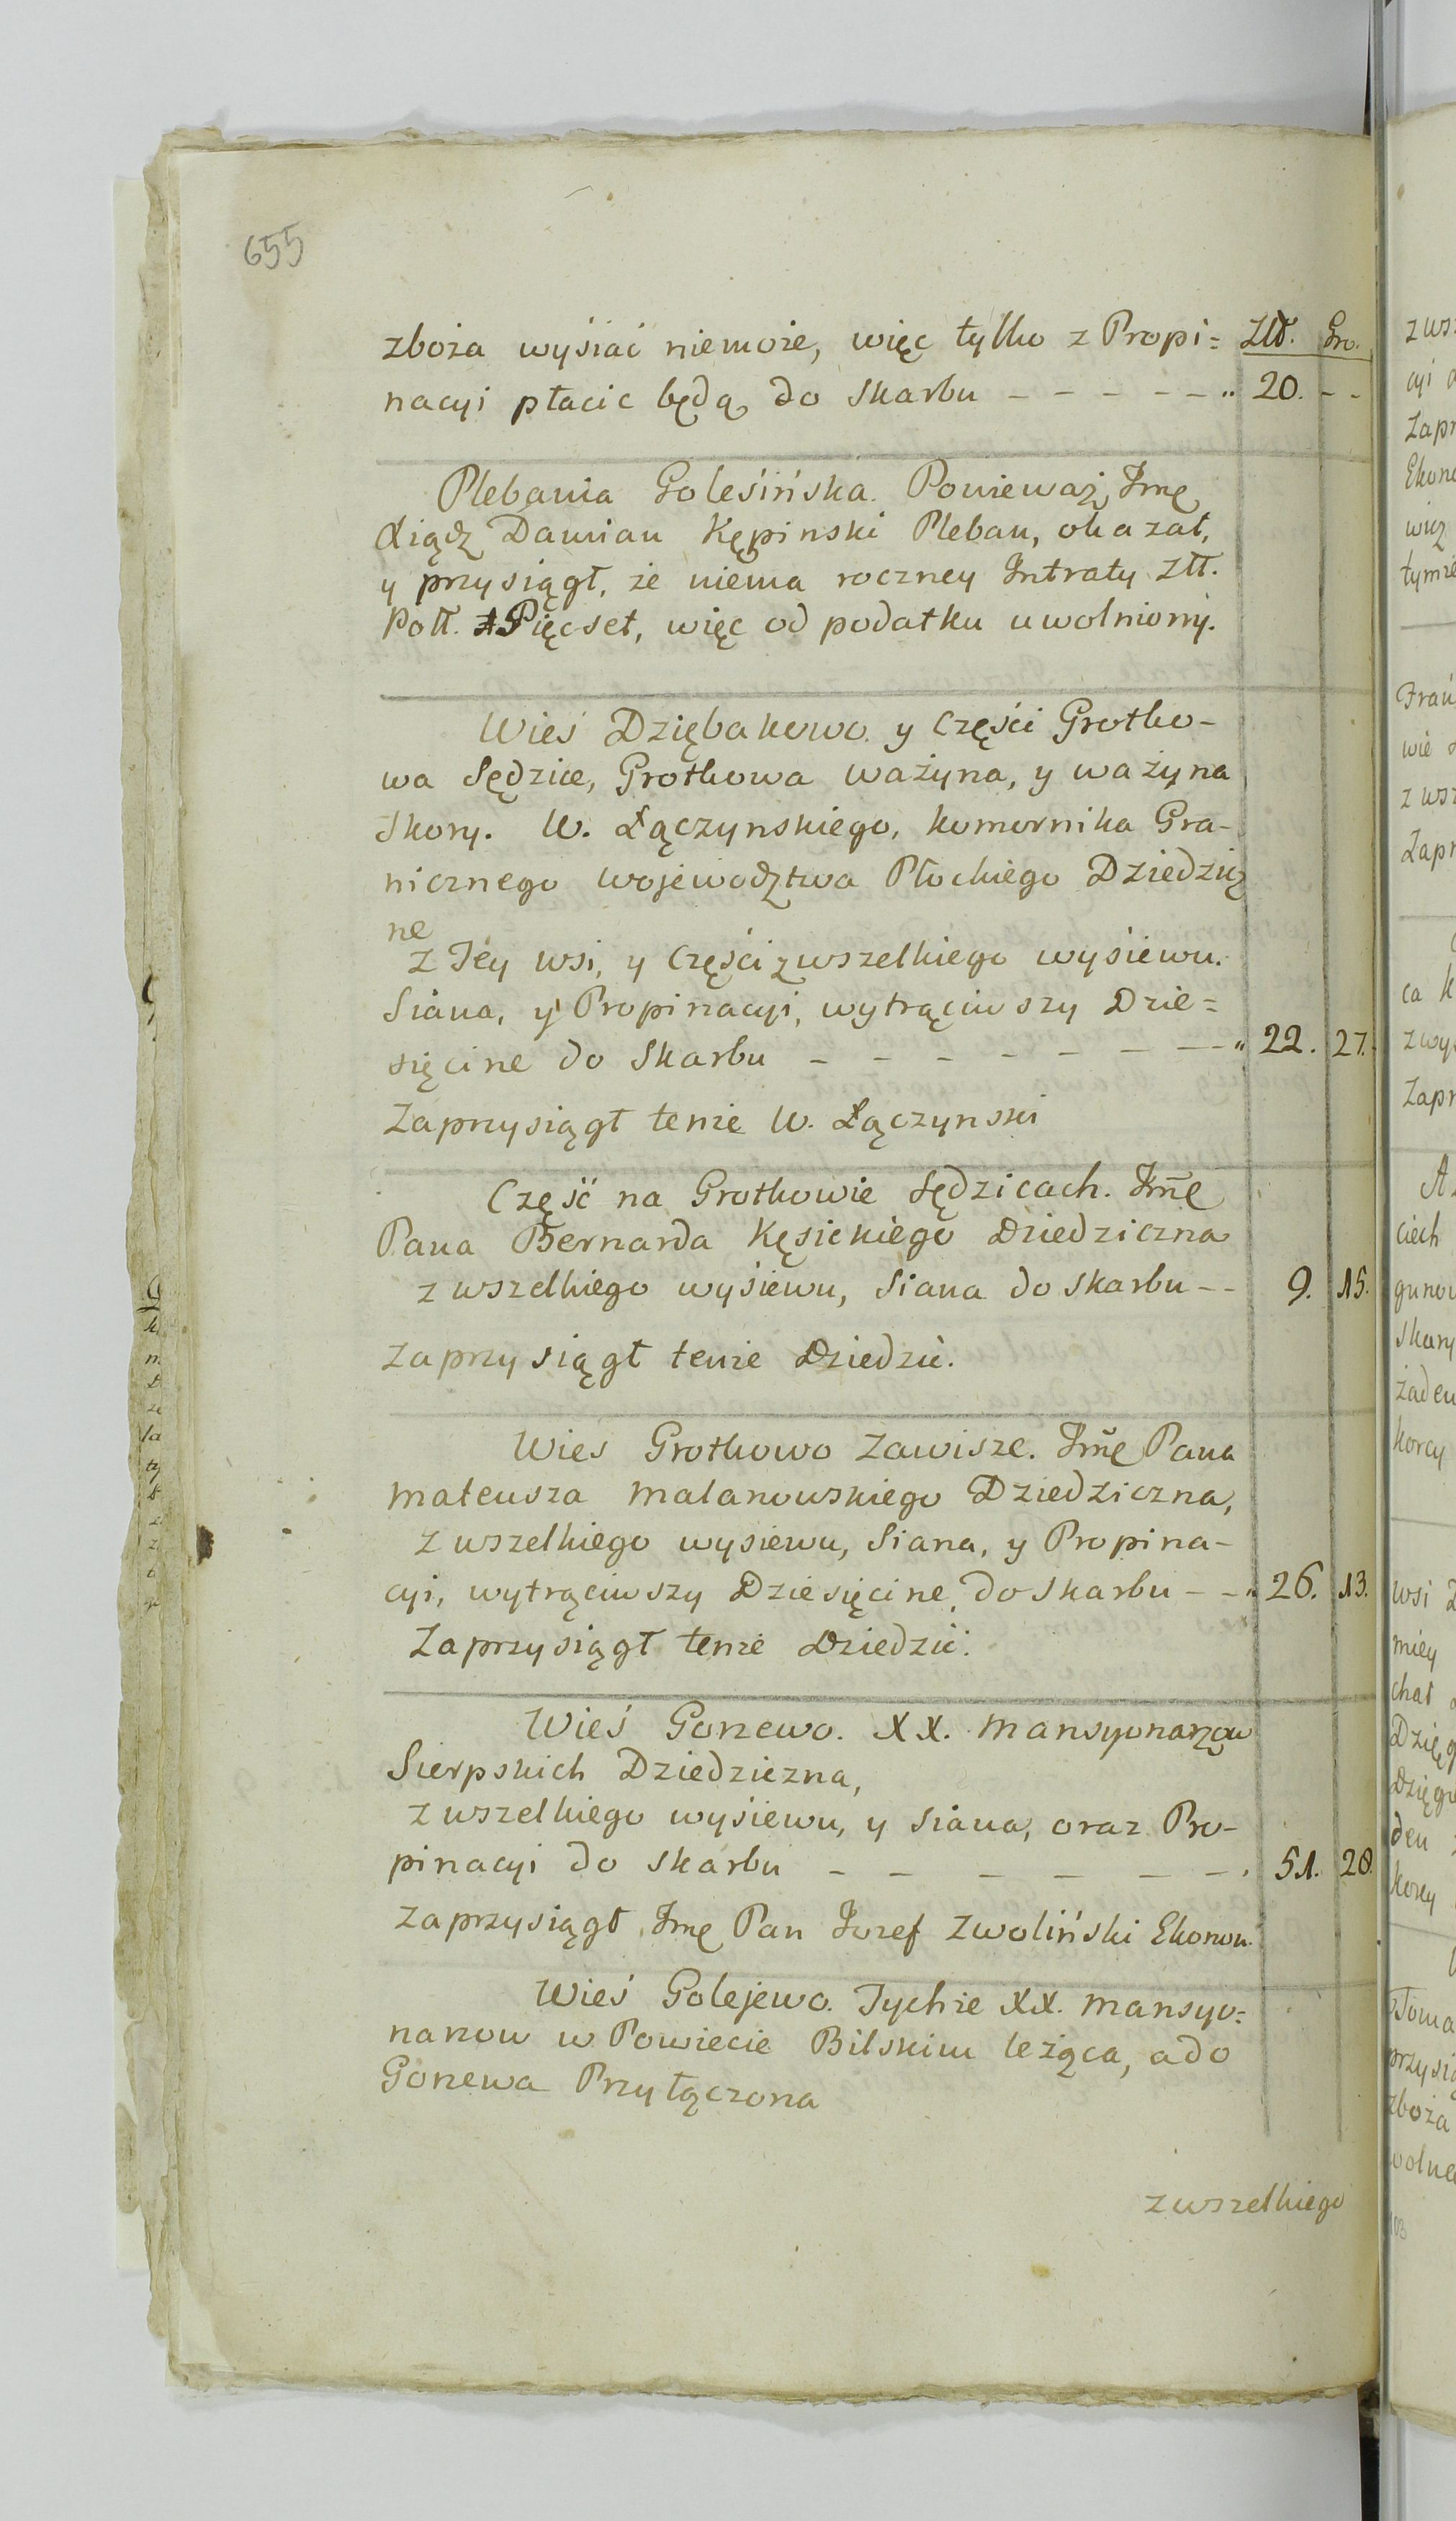 655
zboża wysiać niemoże, więc tylko z Propi= Złł. Gro.
nacyi płacic będą do Skarbu – – – – – „ 20. – –
Plebania Golesińska. Ponieważ Jmę
Xiądz Damian Kępinski Pleban, okazał,
y przysiągł, że niema roczney Intraty Złł.
Poll. Pięcset, więc od podatku uwolniony.
Wieś Dziębakowo y Części Grotko-
wa Sędzice, Grotkowa Ważyna, y Ważyna
Skory. W. Łączynskiego, Komornika Gra-
nicznego Wojewodztwa Płockiego Dziedzicz
ne
z Tey wsi, y Części z wszelkiego wysiewu.
Siana, y Propinacyi, wytrąciwszy Dzie=
sięcine do Skarbu – – – – – – – „ 22. 27.
Zaprzysiągł tenże W. Łączynski
Część na Grotkowie Sędzicach. Jmę
Pana Bernarda Kęsickiego Dziedziczna
z wszelkiego wysiewu, Siana do Skarbu – – 9. 15.
Zaprzysiągł tenże Dziedzic.
Wies Grotkowo Zawisze. Jmę Pana
Mateusza Malanowskiego Dziedziczna,
z wszelkiego wysiewu, Siana, y Propina-
cyi, wytrąciwszy Dziesięcine, do Skarbu – – „ 26. 13.
Zaprzysiągł tenże Dziedzic.
Wieś Gorzewo. XX. Mansyonarzow
Sierpskich Dziedziczna,
z wszelkiego wysiewu, y Siana, oraz Pro-
pinacyi do Skarbu – – – – – – . 51. 28.
Zaprzysiągł Jmę Pan Jozef Zwoliński Ekonom.
Wieś Golejewo. Tychże XX. Mansyo=
narzow w Powiecie Bilskim leżąca, ado
Gorzewa Przyłączona
z wszelkiego